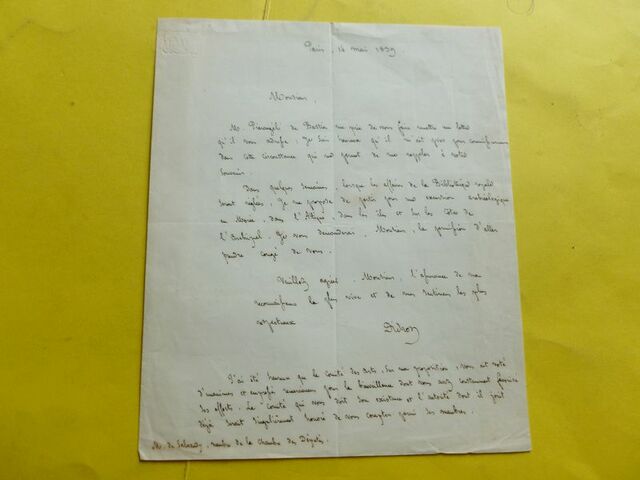 Paris, 14 mai 1839
Monsieur,
M. Pierangeli de Bastia me prie de vous faire remettre la lettre
qu'il vous adresse. Je suis heureux qu'il m'ait pris pour
dans cette circonstance qui me permet de me rappeler à votre
souvenir.
Dans quelques semaines, lorsque les affaires de la Bibliothèque royale
seront réglées, je me propose de partir pour une excursion archéologique
en Morée, dans l'Attique, dans les îles et sur les côtes de
l'Archipel. Je vous demanderai, Monsieur, la permission d'aller
prendre congé de vous.
Veuillez agréer, Monsieur, l'assurance de ma
reconnaissance la plus vive et de mes sentimens les plus
respectueux
Didron
J'ai été heureux que le comité des arts, sur ma proposition, vous ait voté
d'unanimes et remercimens pour la bienveillance dont vous avez constamment favorisé
ses efforts. Le comité qui vous doit son existence et l'autorité dont il jouit
déjà serait singulièrement honoré de vous compter parmi ses membres.
M. de Salvandy, membre de la chambre des Députés.